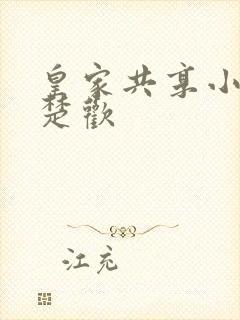 皇家共享小
楚歡
江充